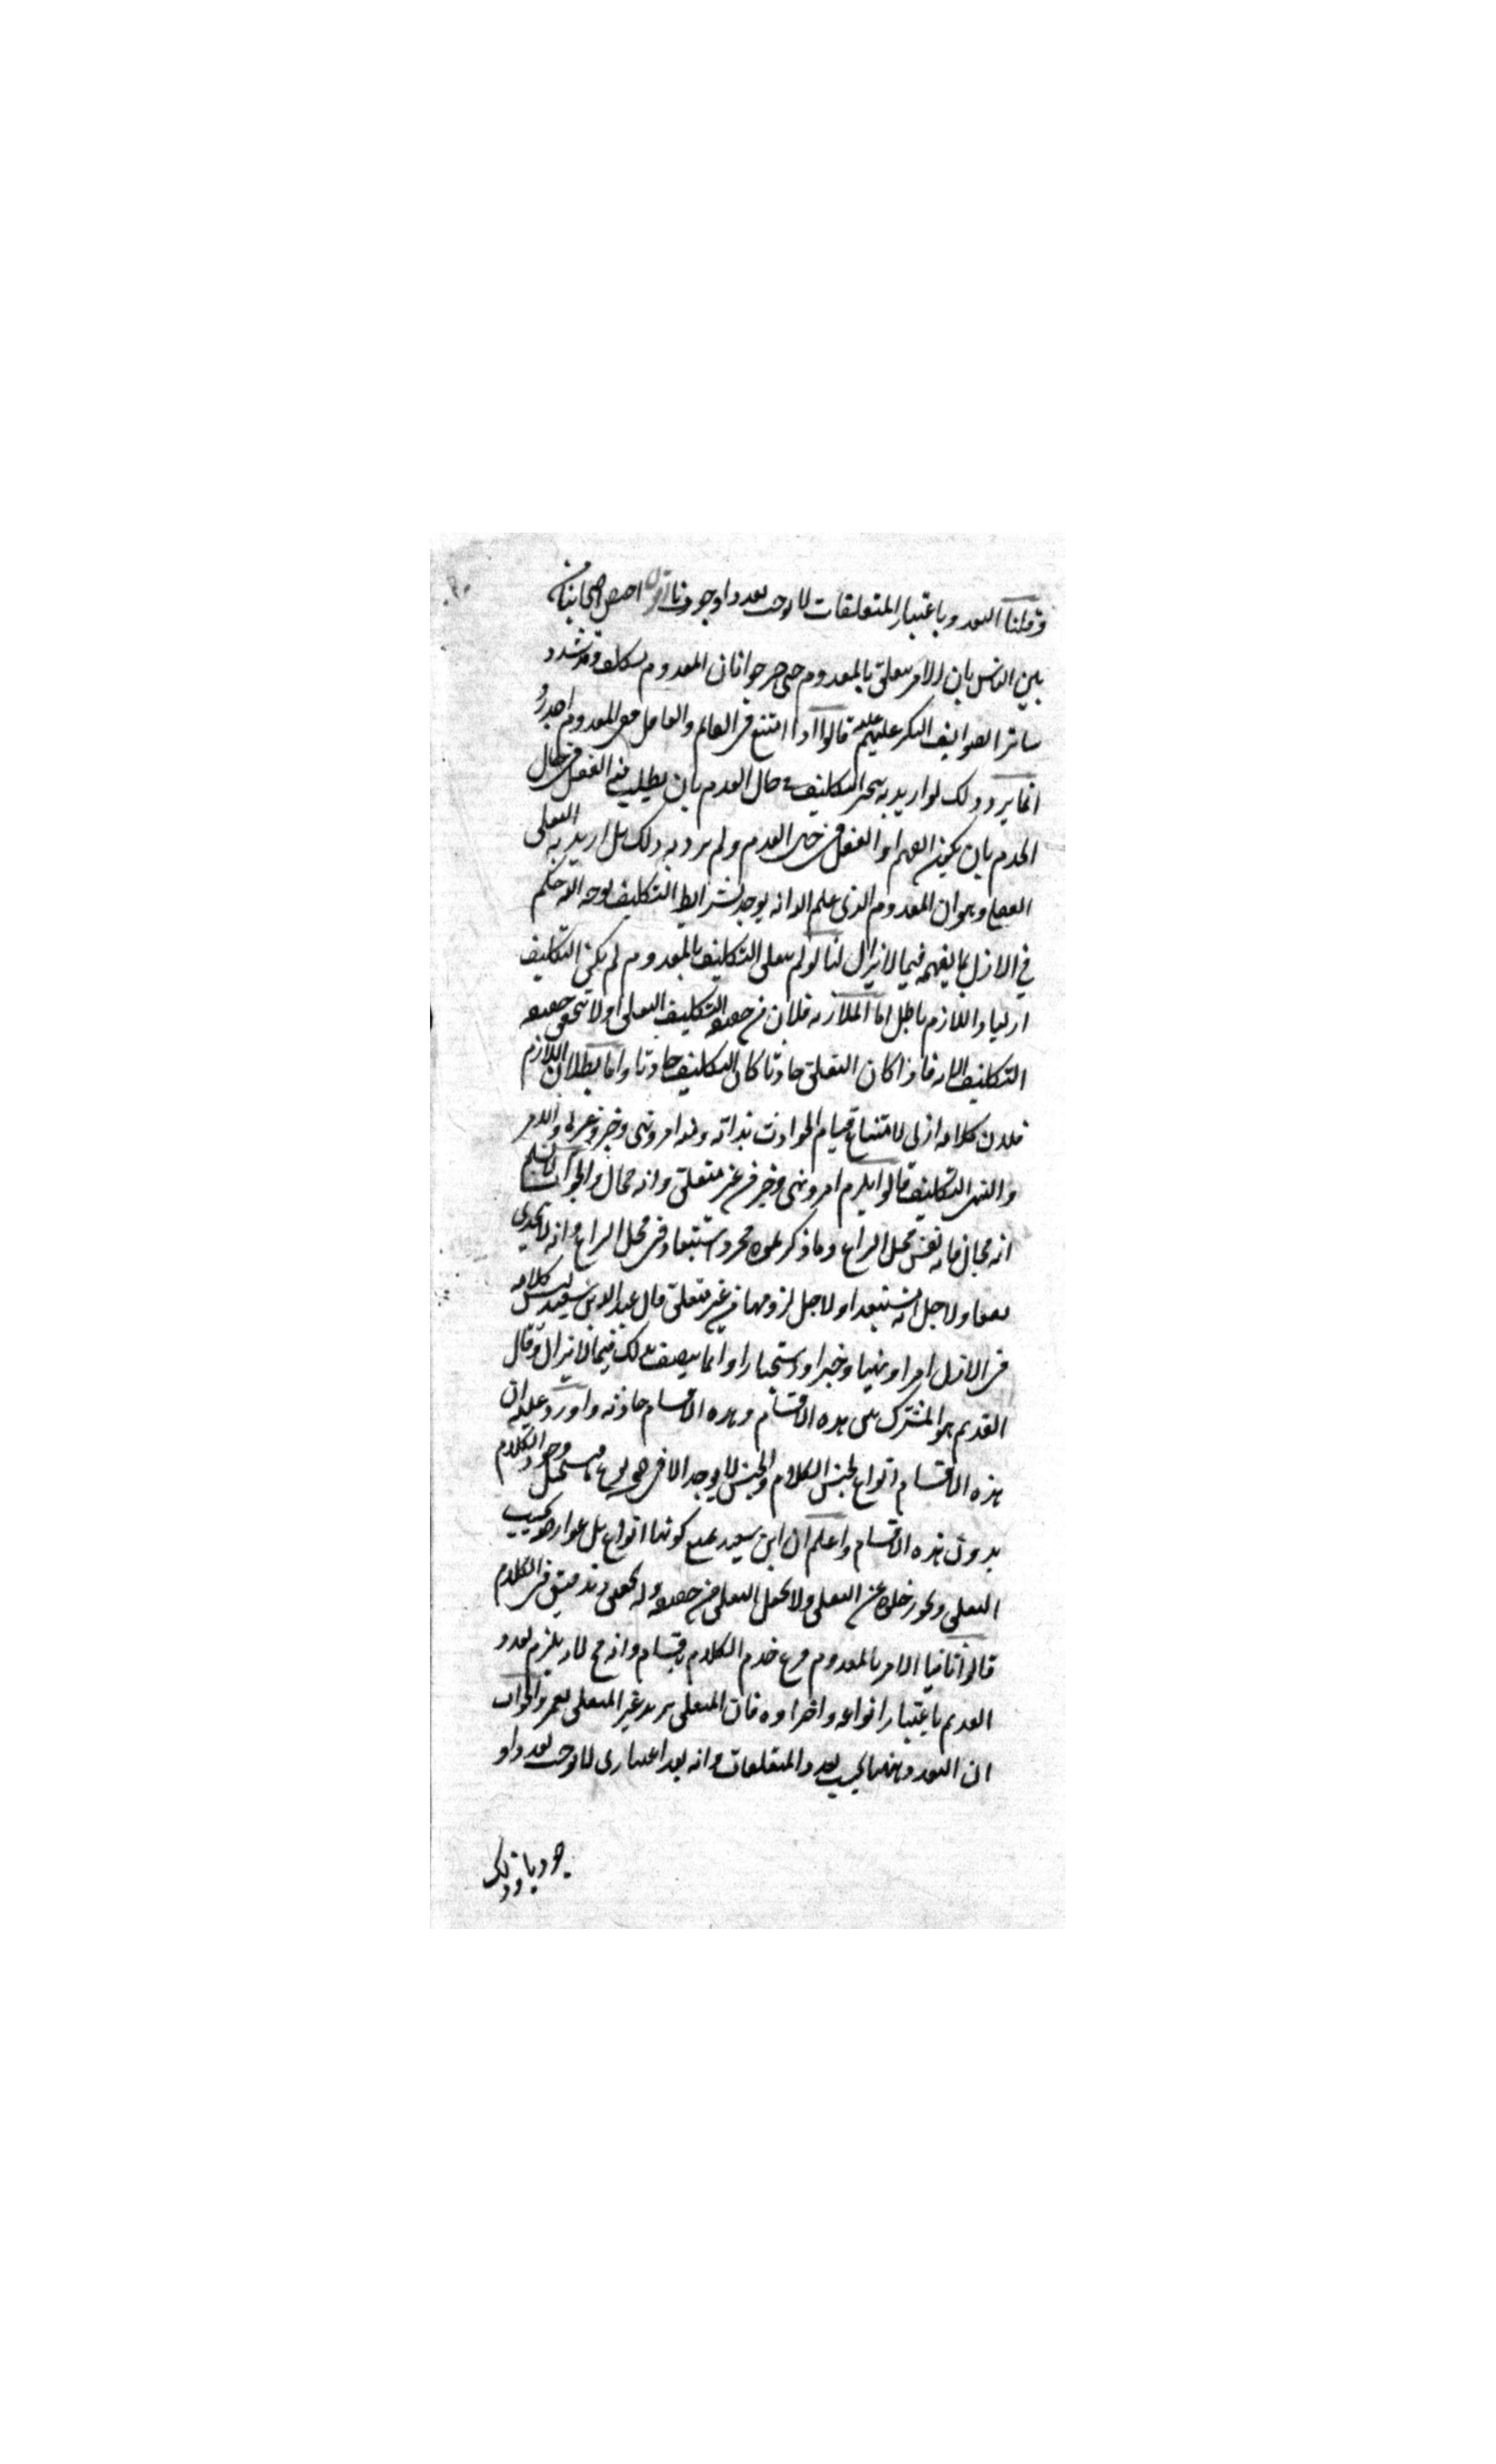 وقلنا التعدد باعتبار المتعلقات لا يوجب تعددا وجوديا اقول اختص اصحابنا من
بين الناس بان الامر يتعلق بالمعدوم حتى صرحوا بان المعدوم مكلف وقد شدد
سائر الطوايف النكير عليهم قالوا اذا امتنع في النائم والغافل ففي المعدوم اجدر و
انما يرد ذلك لو اريد به تنجيز التكليف في حال العدم بان يطلب منه الفعل في حال
العدم بان يكون الفهم او الفعل في حال العدم ولم يرد به ذلك بل اريد به التعلق
العقلي وهو ان المعدوم الذي علم الله انه يوجد بشرايط التكليف توجه اليه حكم
في الازل بما يفهمه فيما لا يزال لنا لو لم يتعلق التكليف بالمعدوم لم يكن التكليف
ازليا واللازم باطل اما الملازمة فلان من حقيقة التكليف التعلق اذ لا تتحقق حقيقة
التكليف الا به فاذا كان التعلق حادثا كان التكليف حادثا واما بطلان اللازم
فلان كلامه ازلي لامتناع قيام الحوادث بذاته ومنه امر ونهي وخبر وغيره والامر
والنهي التكليف قالوا يلزم امر ونهي وخبر من غير متعلق وانه محال والجواب لا نسلم
انه محال فانه نفس محل النزاع وما ذكرتموه مجرد استبعاد في محل النزاع وانه لا يجدي
نفعا ولاجل انه استبعد او لاجل لزومها من غير متعلق قال عبد الله بن سعيد ليس كلامه
في الازل امرا ونهيا وخبرا واستخبارا وانما يتصف بذلك فيما لا يزال وقال
القديم هو المشترك بين هذه الاقسام وهذه الاقسام حادثة واورد عليه ان
هذه الاقسام انواع لجنس الكلام والجنس لا يوجد الا في نوع ما فيستحيل وجود الكلام
بدون هذه الاقسام واعلم ان ابن سعيد يمنع كونها انواعا بل عوارض بحسب
التعلق ويجوز خلوه عن التعلق ولا يجعل التعلق من حقيقته وله تحقيق وتدقيق في الكلام
قالوا ثانيا الامر بالمعدوم فرع قدم الكلام باقسامه وانه مح لانه يلزم تعدد
القديم باعتبار انواعه وافراده فان المتعلق بزيد غير المتعلق بعمرو والجواب
ان التعدد ههنا بحسب تعدد المتعلقات وانه تعدد اعتباري لا يوجب تعددا و
جوديا وذلك